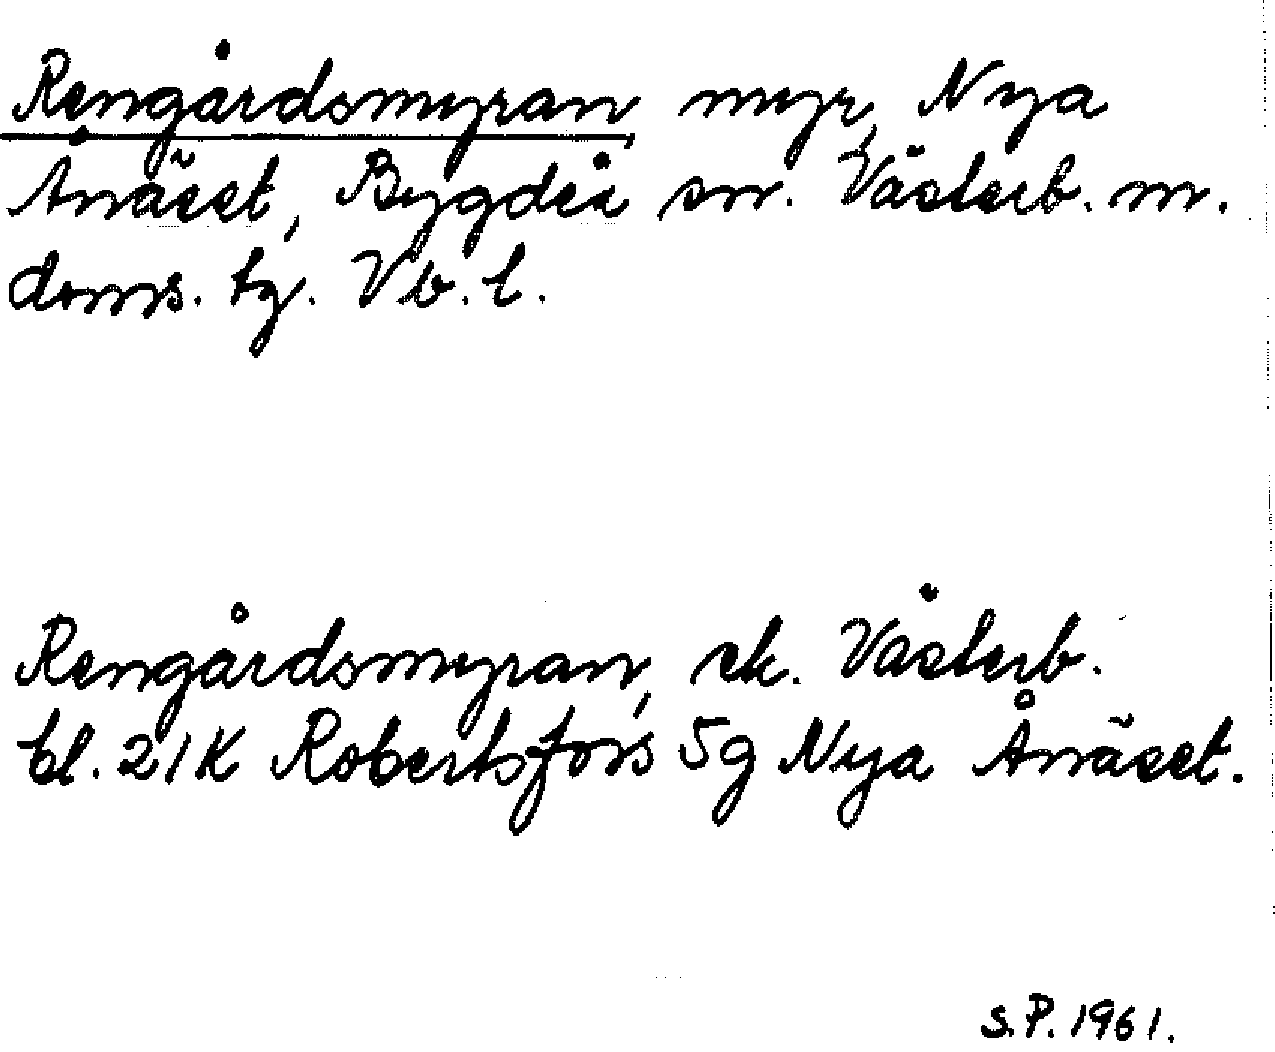 Rengårdsmyran, myr, Nya
Ånäset, Bygdeå sn. Västerb. m.
doms. tg. Vb. l.
Rengårdsmyran, ek. Västerb.
bl. 21K Robertsfors 5g Nya Ånäset.
S.P. 1961.